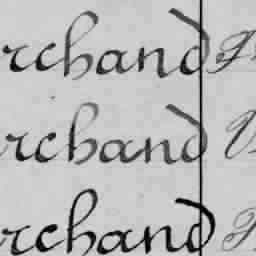 rchand
rchand
rchand